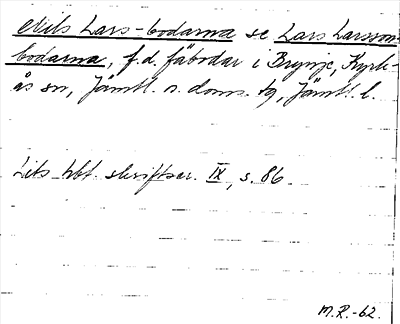 Nils Lars-bodarna se Lars Larsson-
bodarna, f.d. fäbodar i Brynje, Kyrk-
ås sn, Jämtl. n. doms. tg, Jämtl. l.
Lits hbf. skriftser. IX, s. 86.
M.R.-62.